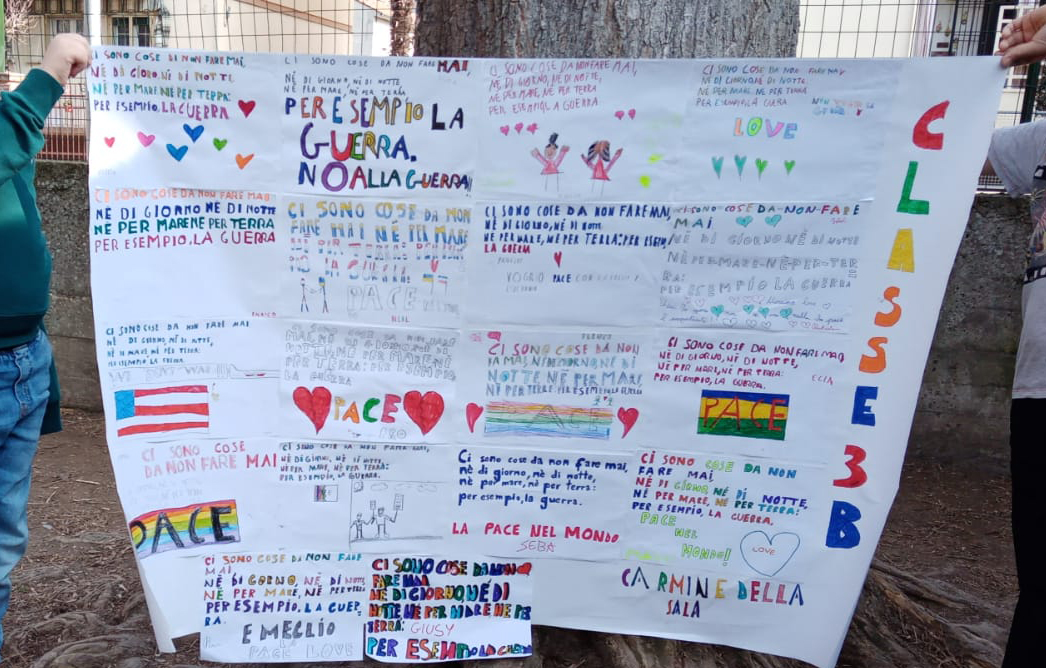 CI SONO COSE DI NON FARE MAI,
NÉ DI GIORO, NÉ DI NOTTE
NÉ PER MARE NÉ PER TERRA:
PER ESEMPIO, LA GUERRA
CI SONO COSE DA NON FARE MAI,
NÉ DI GIORNO, NÉ DI NOTTE
NÉ PER MARE, NÉ PER TERRA
PER ESEMPIO LA
GUERRA.
NO ALLA GUERRA
CI SONO COSE DA NON FARE MAI,
NÉ DI GIORNO, NÉ DI NOTTE,
NÉ PER MARE, NÉ PER TERRA
PER ESEMPIO A GUERRA
CI SONO COSE DA NON FARE MAI
NÉ DI GIORNO, NÉ DI NOTTE
NÉ PER MARE, NÉ PER TERRA
PER ESEMPIO LA GUERRA
LOVE
CI SONO COSE DA NON FARE MAI
NÉ DI GIORNO NÉ DI NOTTE
NÉ PER MARE NÉ PER TERRA
PER ESEMPIO, LA GUERRA
CI SONO COSE DA NON
FARE MAI NÉ PER MARE
PACE
CI SONO COSE DA NON FARE MAI,
NÉ DI GIORNO, NÉ DI NOTTE
NÉ PER MARE, NÉ PER TERRA: PER ESEMPIO
LA GUERRA
VOGLIO PACE CON
CI SONO COSE DA NON FARE
MAI
NÉ DI GIORNO NÉ DI NOTTE
NÉ PER MARE NÉ PER TER
RA:
PER ESEMPIO LA GUERRA
CI SONO COSE DA NON FARE MAI
NÉ DI GIORNO, NÉ DI NOTTE,
NÉ DI MARE, NÉ PER TERRA:
PER ESEMPIO LA GUERRA
PER TERRA: PER ESEMPIO
LA GUERRA
PACE
CI SONO COSE DA NON
NOTTE NÉ PER MARE,
NÉ PER TERRA
PACE
CI SONO COSE DA NON FARE MAI,
NÉ DI GIORNO, NÉ DI NOTTE,
NÉ PER MARE, NÉ PER TERRA:
PER ESEMPIO, LA GUERRA.
PACE
CI SONO COSE
DA NON FARE MAI
PACE
CI SONO COSE DA NON FARE MAI,
NÉ DI GIORNO, NÉ DI NOTTE,
NÉ PER MARE, NÉ PER TERRA:
PER ESEMPIO, LA GUERRA.
Ci sono cose da non fare mai,
né di giorno, né di notte,
né per mare, né per terra:
per esempio, la guerra.
LA PACE NEL MONDO
SEBA
CI SONO COSE DA NON
FARE MAI,
NÉ DI GIORNO, NÉ DI NOTTE,
NÉ PER MARE, NÉ PER TERRA:
PER ESEMPIO, LA GUERRA,
PACE
NEL
MONDO!
LOVE
CARMINE DELLA
SALA
CI SONO COSE DA NON FARE
MAI,
NÉ DI GIORNO, NÉ DI NOTTE
NÉ PER MARE, NÉ PER TERRA
PER ESEMPIO. LA GUER
RA.
E MEGLIO
LA
PACE LOVE
CI SONO COSE DA NON
FARE MAI
NÉ DI GIORNO NÉ DI
NOTTE, NÉ PER MARE NÉ PER
TERRA: GIUSY
PER ESEMPIO LA GUERRA
CLASSE 3B